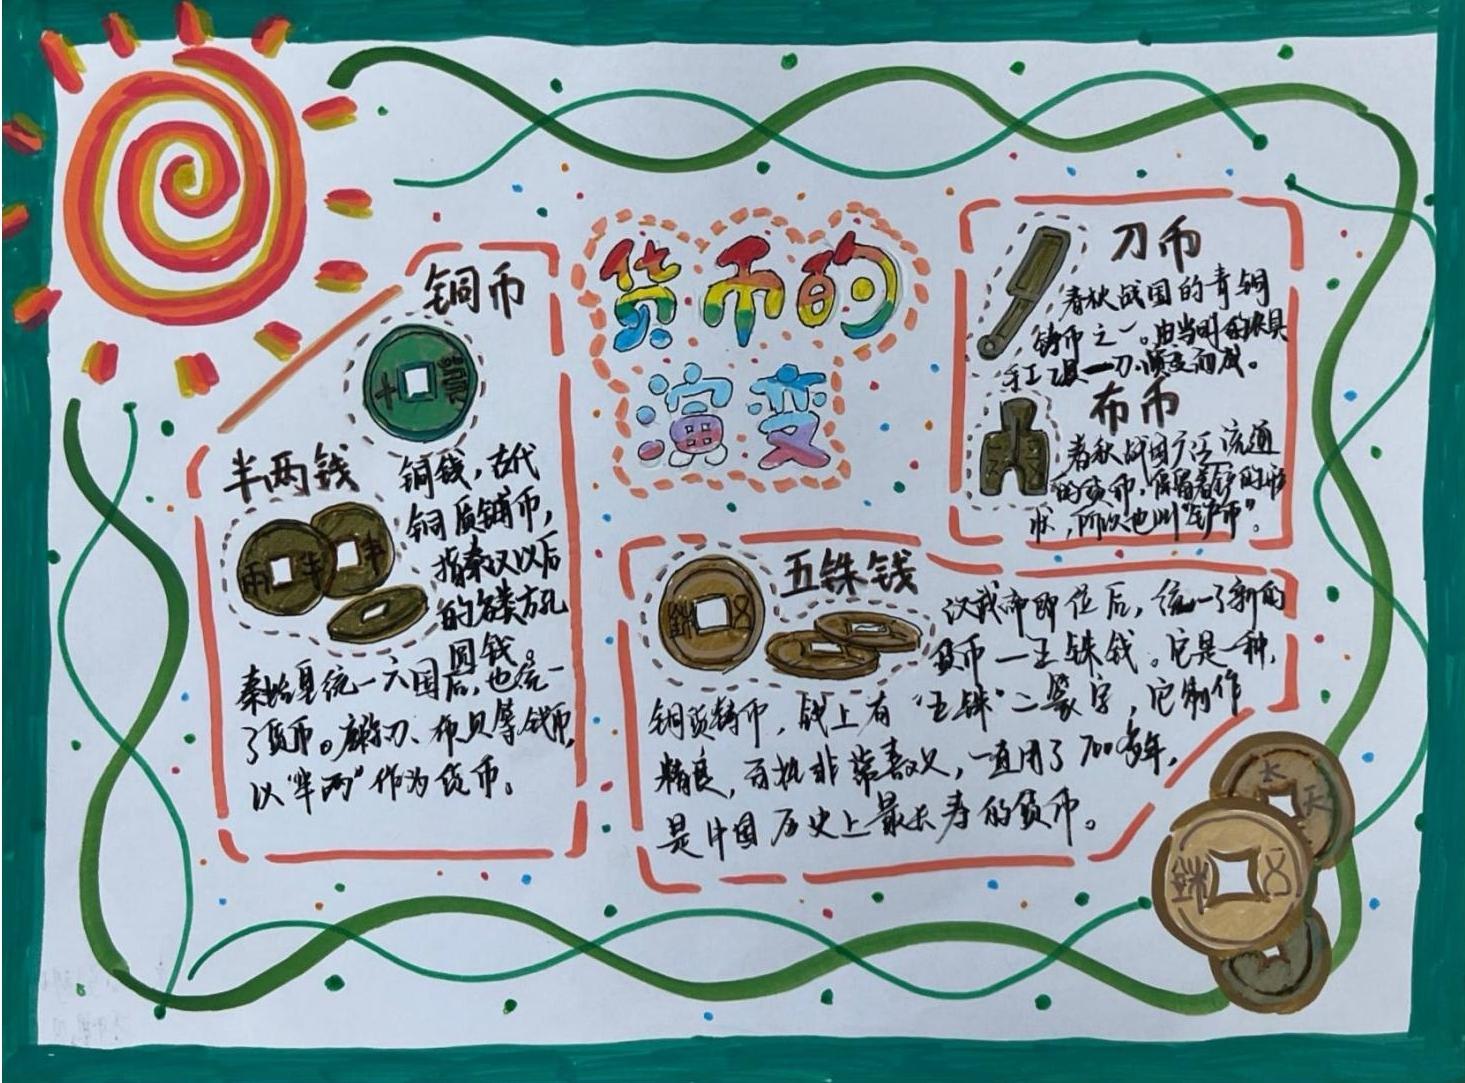 货币的
演变
铜币
铜钱，古代
铜质铺币，
指秦汉以后
的各类方孔
圆钱。
半两钱
兩半
半
秦始皇统一六国后，也统一
了货币。废除刀、布贝等钱币，
以“半两”作为货币。
刀币
春秋战国的青铜
铸币之一。由当时的农具
手工工具—刀演变而成。
布币
春秋战国广泛流通
的货币，保留着铲的形
状，所以也叫“铲币”。
五铢钱
銖五
汉武帝即位后，统一了新的
货币—五铢钱。它是一种，
铜质铸币，钱上有“五铢”二篆字，它制作
精良，百姓非常喜欢，一直用了700多年，
是中国历史上最长寿的货币。
銖五